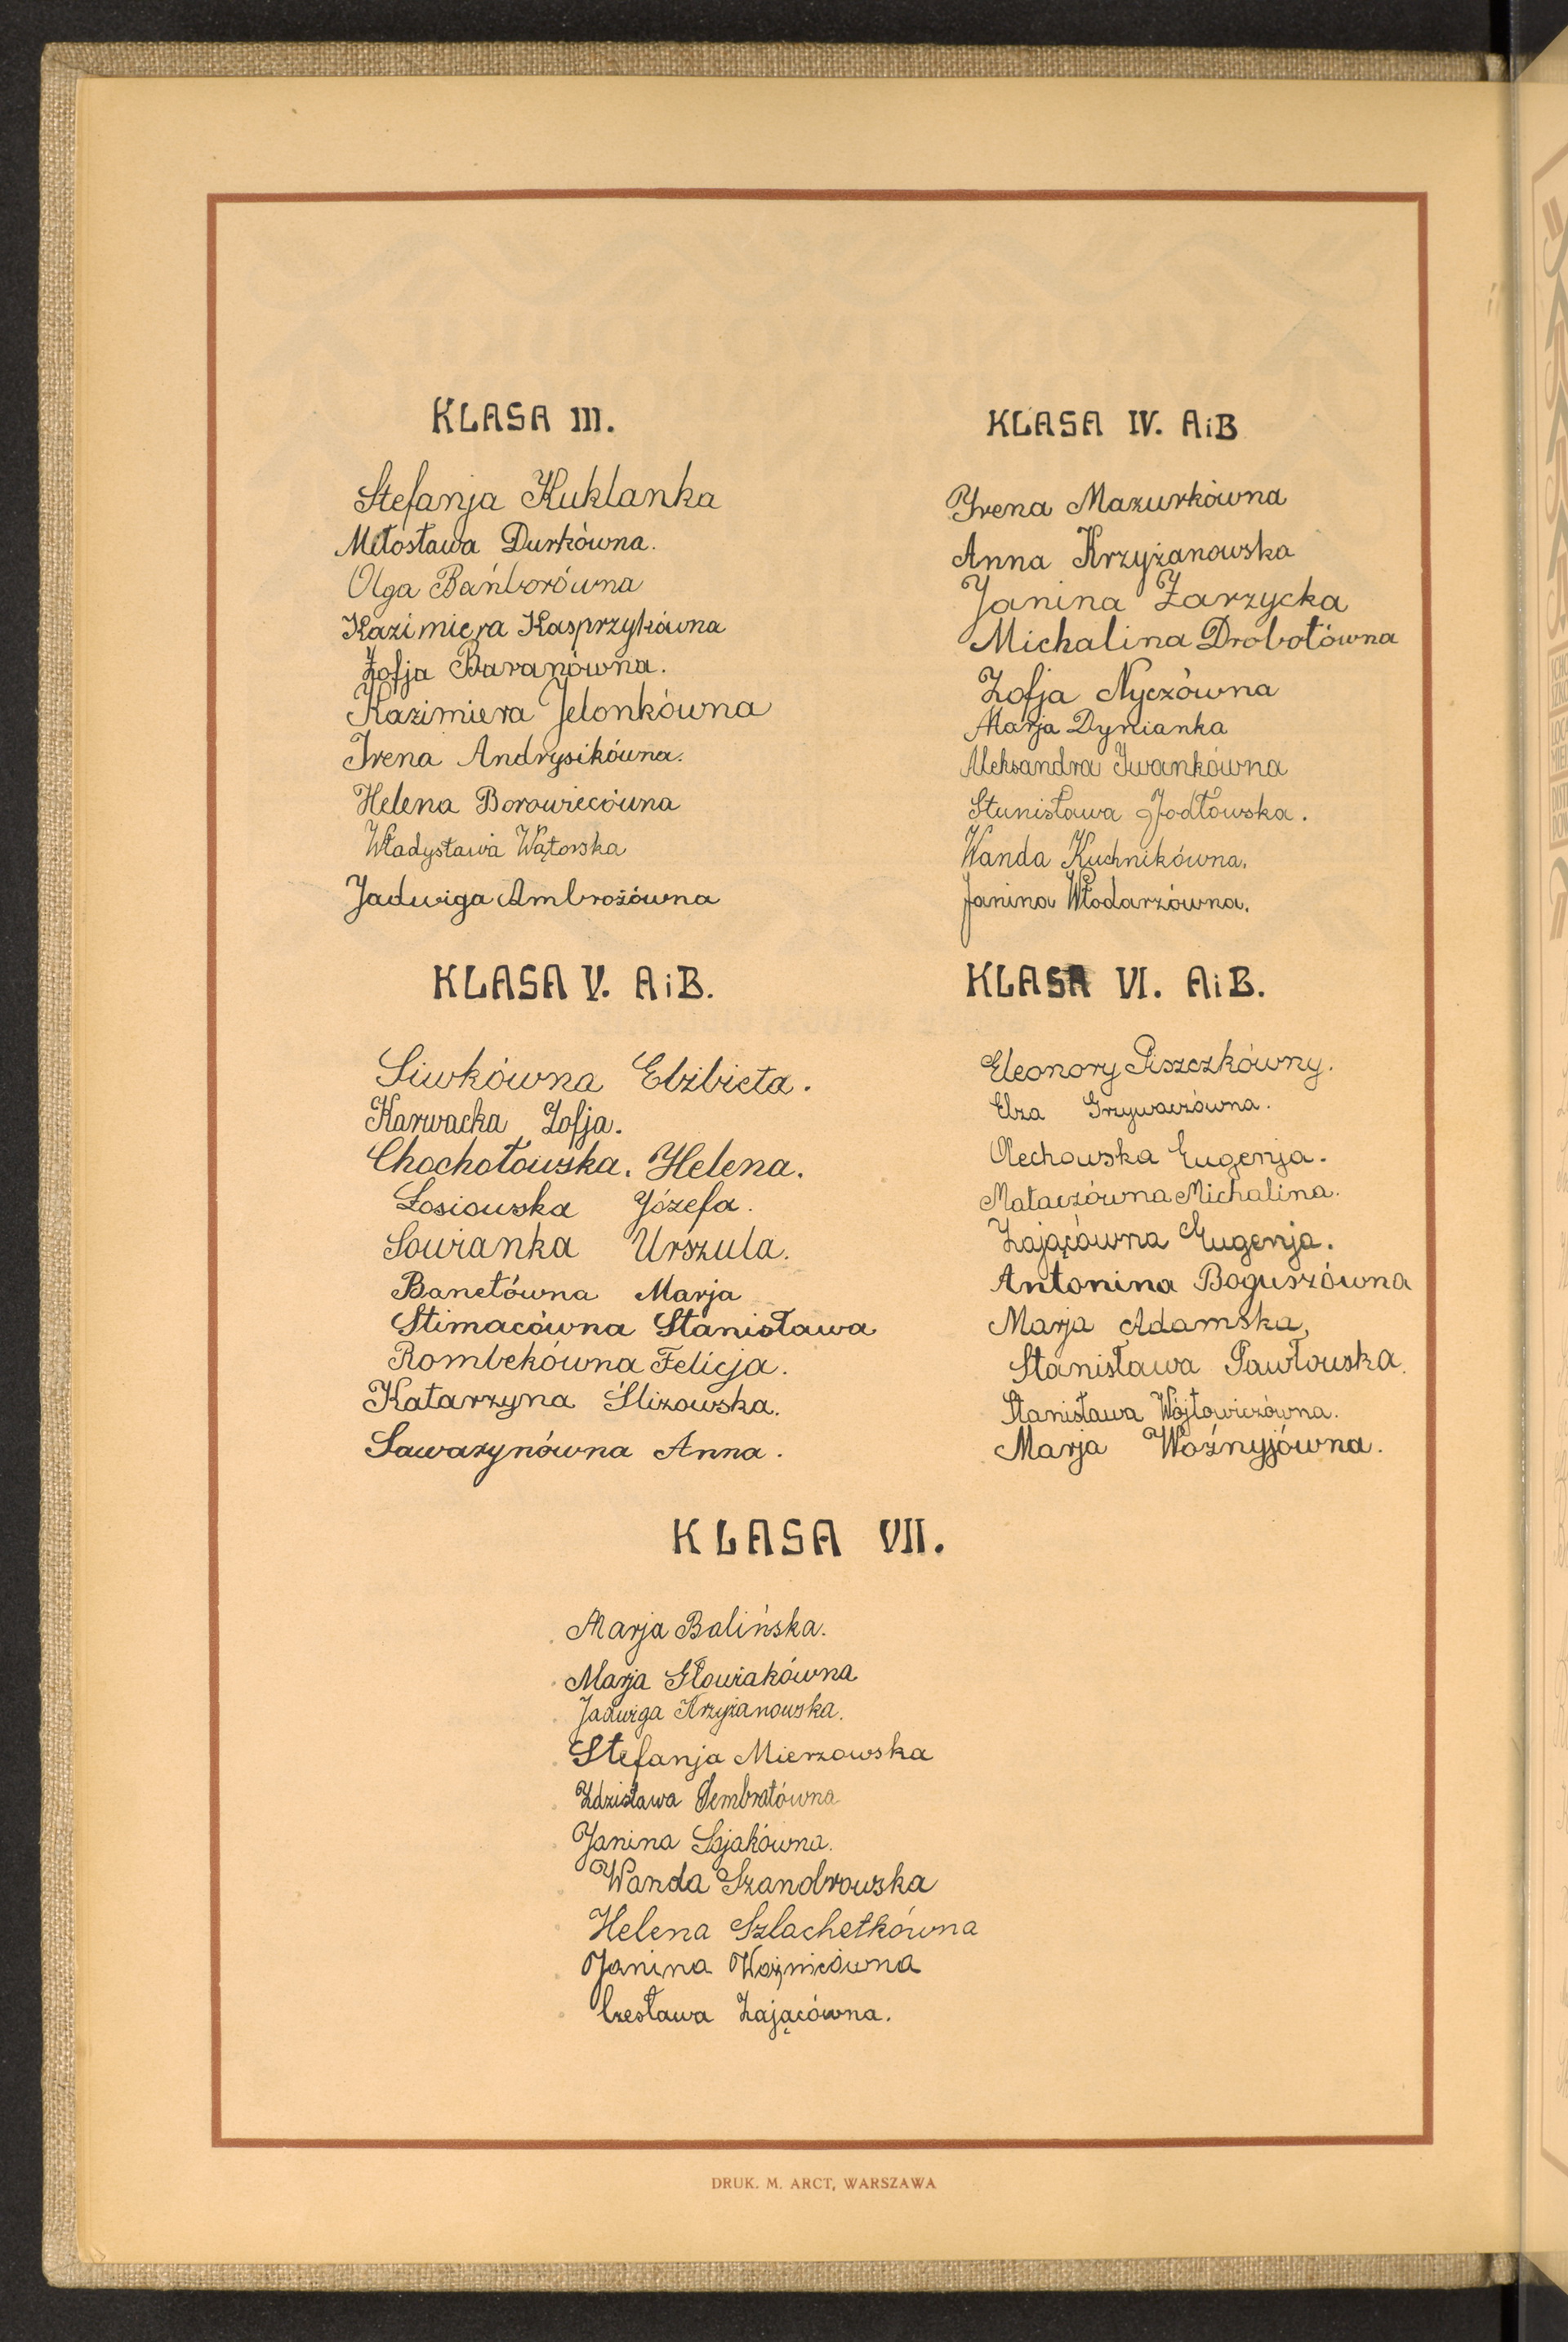 KLASA III.
Stefanja Kuklanka
Miłosława Durkówna.
Olga Bańborówna
Kazimiera Kasprzykówna
Zofja Baranówna.
Kazimiera Jelonkówna
Irena Andrysikówna.
Helena Borowiecówna
Władysława Wątorska
Jadwiga Ambrożówna
KLASA IV. A i B
Irena Mazurkówna
Anna Krzyżanowska
Janina Zarzycka
Michalina Drobotówna
Zofja Nyczówna
Marja Dynianka
Aleksandra Iwankówna
Stanisława Jodłowska.
Wanda Kuchnikówna.
Janina Włodarzówna.
KLASA V. A i B.
Siwkówna Elżbieta.
Karwacka Zofja.
Chochołowska. Helena.
Łosiowska Józefa.
Sowianka Urszula.
Banetówna Marja
Stimacówna Stanisława
Rombekówna Felicja.
Katarzyna Ślizowska.
Sawarynówna Anna.
KLASA VI. A i B.
Eleonory Piszczkówny.
Elza Grzywaczówna.
Olechowska Eugenja.
Mataczówna Michalina.
Zającówna Eugenja.
Antonina Boguszówna
Marja Adamska,
Stanisława Pawłowska.
Stanisława Wójtowiczówna.
Marja Woźnyjówna.
KLASA VII.
Marja Balińska.
Marja Głowiakówna
Jadwiga Krzyżanowska.
Stefanja Mierzowska
Zdzisława Sembratówna
Janina Sojakówna.
Wanda Szandrowska
Helena Szlachetkówna
Janina Woźnicówna
Czesława Zającówna.
DRUK. M. ARCT, WARSZAWA